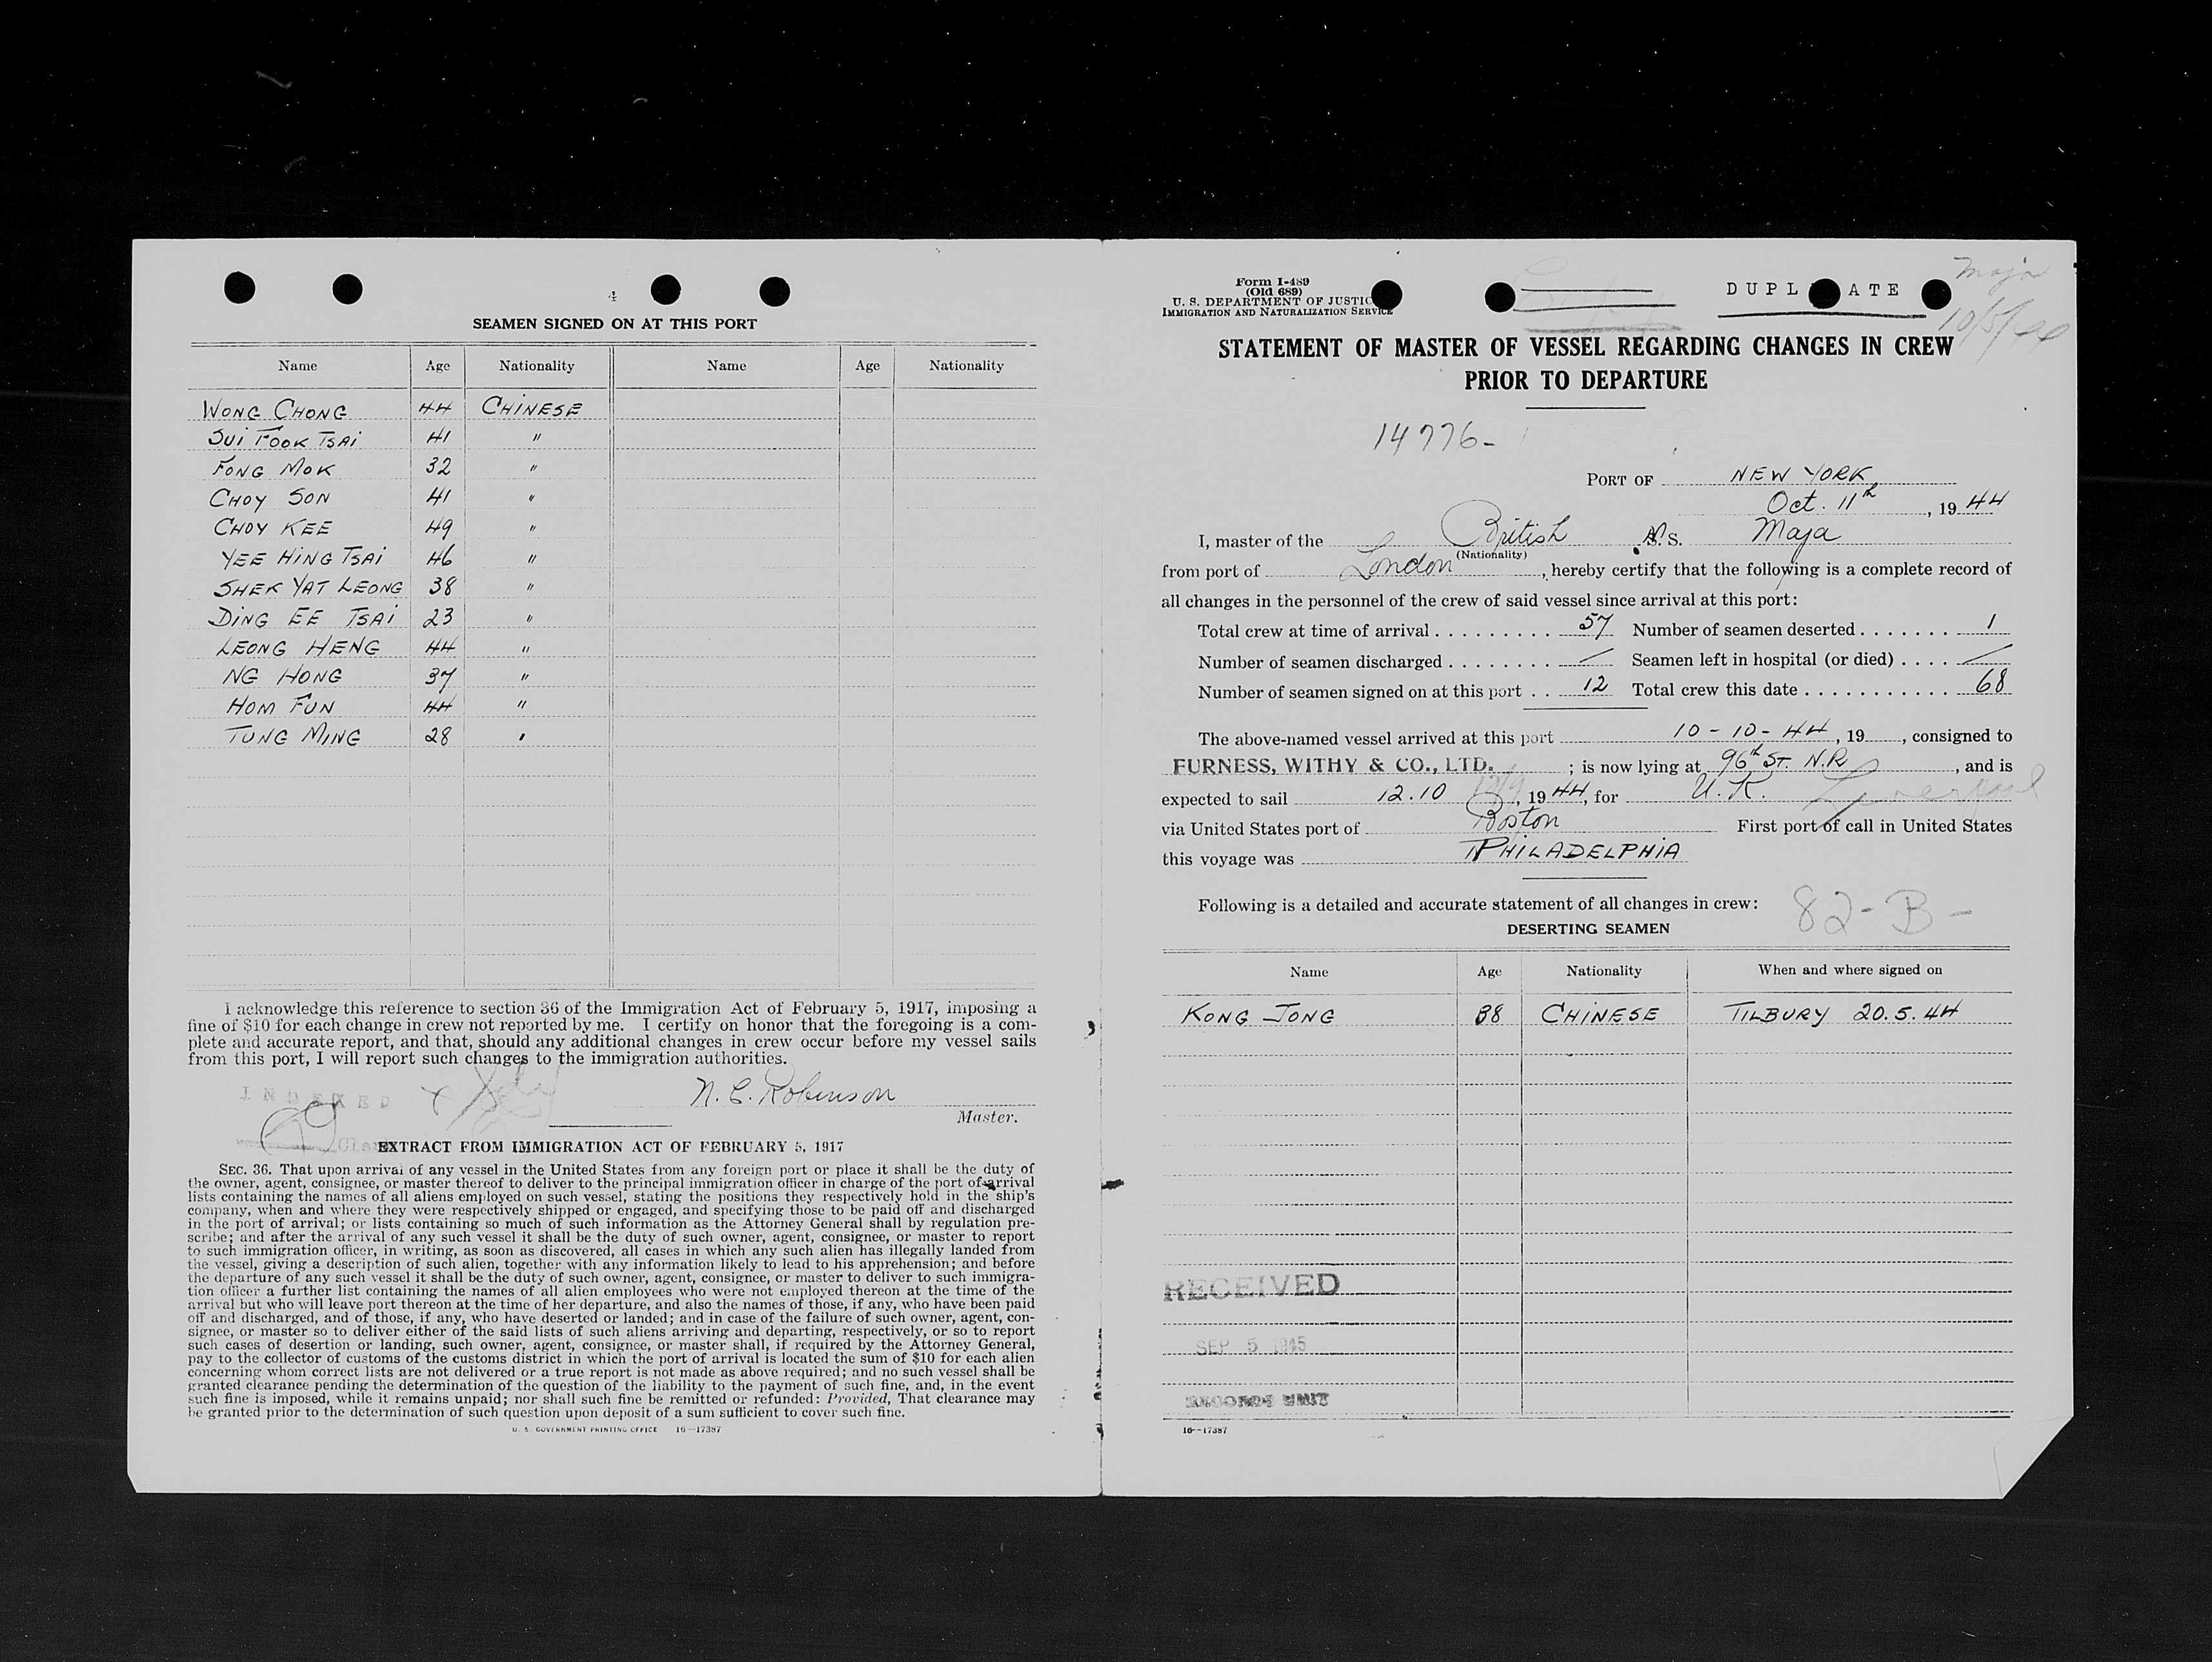 4
SEAMEN SIGNED ON AT THIS PORT
Name Age Nationality Name Age Nationality
WONG CHONG 44 CHINESE
SUI FOOK TSAI 41 "
FONG MOK 32 "
CHOY SON 41 "
CHOY KEE 49 "
YEE HING TSAI 46 "
SHEK YAT LEONG 38 "
DING EE TSAI 23 "
LEONG HENG 44 "
NG HONG 37 "
HOM FUN 44 "
TUNG MING 28 "
I acknowledge this reference to section 36 of the Immigration Act of February 5, 1917, imposing a
fine of $10 for each change in crew not reported by me. I certify on honor that the foregoing is a com-
plete and accurate report, and that, should any additional changes in crew occur before my vessel sails
from this port, I will report such changes to the immigration authorities.
INDEXED
N. C. Robinson
Master.
EXTRACT FROM IMMIGRATION ACT OF FEBRUARY 5, 1917
SEC. 36. That upon arrival of any vessel in the United States from any foreign port or place it shall be the duty of
the owner, agent, consignee, or master thereof to deliver to the principal immigration officer in charge of the port of arrival
lists containing the names of all aliens employed on such vessel, stating the positions they respectively hold in the ship's
company, when and where they were respectively shipped or engaged, and specifying those to be paid off and discharged
in the port of arrival; or lists containing so much of such information as the Attorney General shall by regulation pre-
scribe; and after the arrival of any such vessel it shall be the duty of such owner, agent, consignee, or master to report
to such immigration officer, in writing, as soon as discovered, all cases in which any such alien has illegally landed from
the vessel, giving a description of such alien, together with any information likely to lead to his apprehension; and before
the departure of any such vessel it shall be the duty of such owner, agent, consignee, or master to deliver to such immigra-
tion officer a further list containing the names of all alien employees who were not employed thereon at the time of the
arrival but who will leave port thereon at the time of her departure, and also the names of those, if any, who have been paid
off and discharged, and of those, if any, who have deserted or landed; and in case of the failure of such owner, agent, con-
signee, or master so to deliver either of the said lists of such aliens arriving and departing, respectively, or so to report
such cases of desertion or landing, such owner, agent, consignee, or master shall, if required by the Attorney General,
pay to the collector of customs of the customs district in which the port of arrival is located the sum of $10 for each alien
concerning whom correct lists are not delivered or a true report is not made as above required; and no such vessel shall be
granted clearance pending the determination of the question of the liability to the payment of such fine, and, in the event
such fine is imposed, while it remains unpaid; nor shall such fine be remitted or refunded: Provided, That clearance may
be granted prior to the determination of such question upon deposit of a sum sufficient to cover such fine.
U. S. GOVERNMENT PRINTING OFFICE 16-17387
Form I-489
(Old 689)
U. S. DEPARTMENT OF JUSTIC
IMMIGRATION AND NATURALIZATION SERVICE
DUPL ATE
Maja
STATEMENT OF MASTER OF VESSEL REGARDING CHANGES IN CREW
PRIOR TO DEPARTURE
14776-
PORT OF NEW YORK
Oct. 11th, 1944
I, master of the British S. Maja
(Nationality)
from port of London, hereby certify that the following is a complete record of
all changes in the personnel of the crew of said vessel since arrival at this port:
Total crew at time of arrival 57 Number of seamen deserted 1
Number of seamen discharged / Seamen left in hospital (or died) /
Number of seamen signed on at this port 12 Total crew this date 68
The above-named vessel arrived at this port 10-10-44, 19, consigned to
FURNESS, WITHY & CO., LTD. ; is now lying at 96th ST. N.R, and is
expected to sail 12.10, 1944, for U.K. Liverpool
via United States port of Boston First port of call in United States
this voyage was PHILADELPHIA
Following is a detailed and accurate statement of all changes in crew: 82-B-
DESERTING SEAMEN
Name Age Nationality When and where signed on
KONG JONG 38 CHINESE TILBURY 20.5.44
RECEIVED
SEP 5 1945
RECORDS UNIT
16-17387